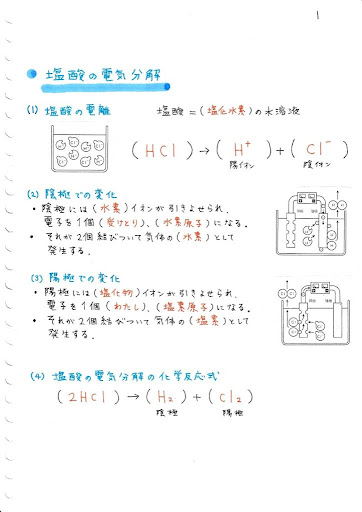 1
塩酸の電気分解
(1) 塩酸の電離 塩酸=(塩化水素)の水溶液
(HCl)→(H⁺)+(Cl⁻)
陽イオン 陰イオン
(2) 陰極での変化
・陰極には(水素)イオンが引きよせられ、
電子を1個(受けとり)、(水素原子)になる。
・それが2個結びついて気体の(水素)として
発生する。
(3) 陽極での変化
・陽極には(塩化物)イオンが引きよせられ、
電子を1個(わたし)、(塩素原子)になる。
・それが2個結びついて気体の(塩素)として
発生する。
(4) 塩酸の電気分解の化学反応式
(2HCl)→(H₂)+(Cl₂)
陰極 陽極